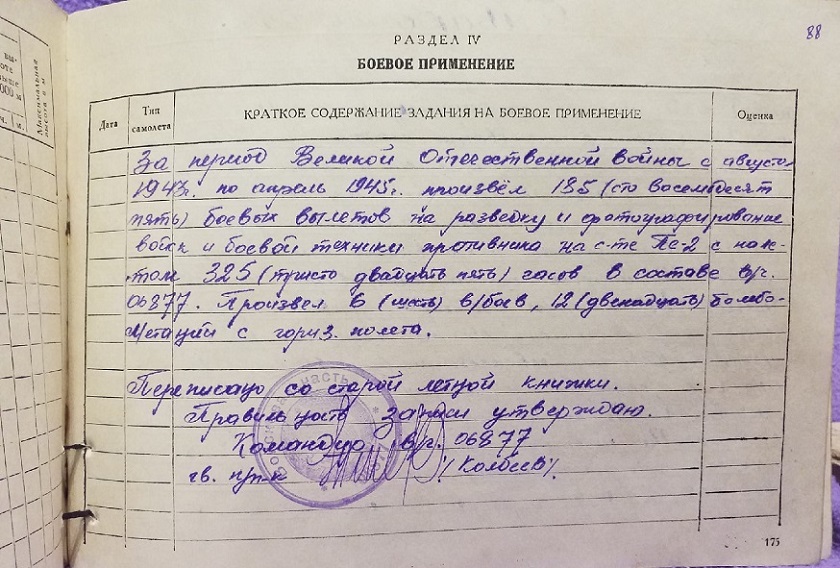 88
РАЗДЕЛ IV
БОЕВОЕ ПРИМЕНЕНИЕ
Дата
Тип самолета
КРАТКОЕ СОДЕРЖАНИЕ ЗАДАНИЯ НА БОЕВОЕ ПРИМЕНЕНИЕ
Оценка
За период Великой Отечественной войны с августа
1943г. по апрель 1945г. произвёл 185 (сто восемьдесят
пять) боевых вылетов на разведку и фотографирование
войск и боевой техники противника на с-те Пе-2 с нале-
том 325 (тристо двадцать пять) часов в составе в/ч.
06877. Произвел 6 (шесть) в/боев, 12 (двенадцать) бомбо-
метаций с гориз. полета.
Переписано со старой летной книжки.
Правильность записи утверждаю.
Командир в/ч. 06877
гв. п/п-к /Колбеев/
175
Максимальная высота в м
часть